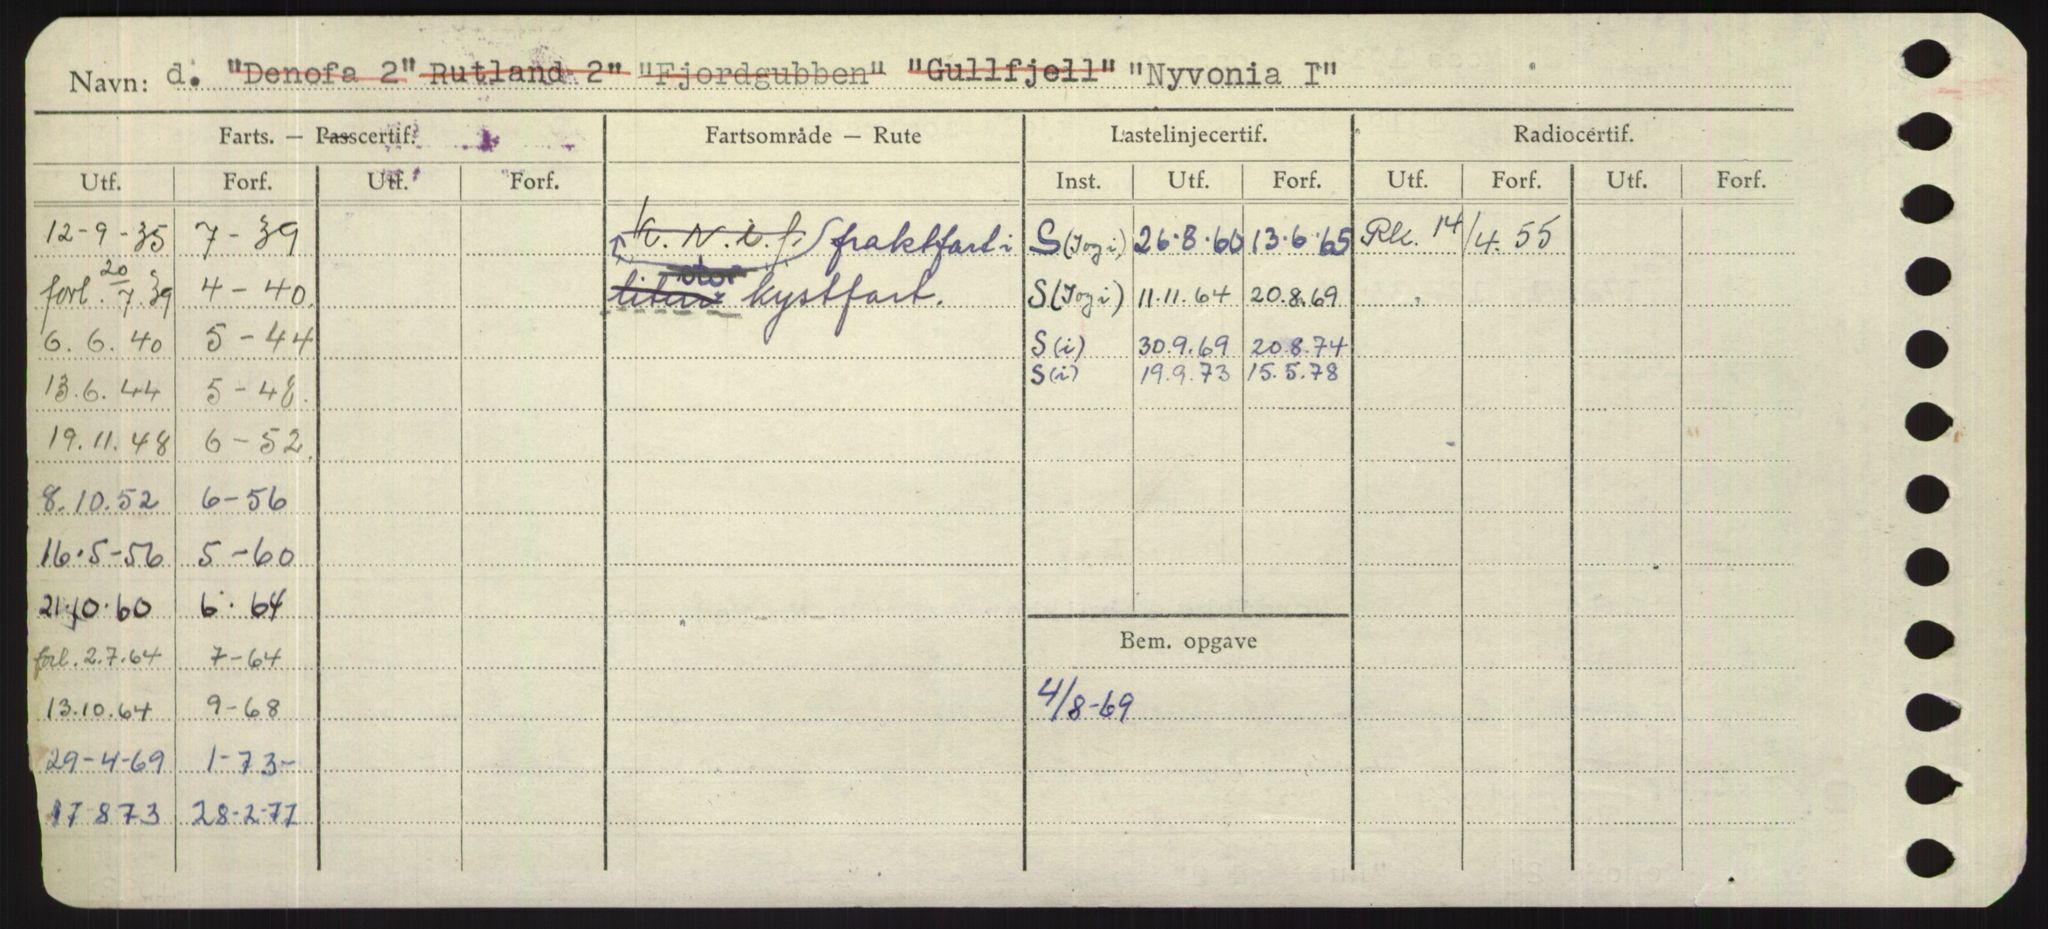 Navn: d. "Denofa 2" Rutland 2" "Fjordgubben" "Gullfjell" "Nyvonia I"
Farts. — Passcertif. Fartsområde — Rute Lastelinjecertif. Radiocertif.
Utf. Forf. Utf. Forf. Inst. Utf. Forf. Utf. Forf. Utf. Forf.
12-9-35 7-39 K.N.i.f. fraktfart i S (Jog i) 26.8.60 13.6.65 Rk. 14/4.55
forl. 20/7.39 4-40. liten stor kystfart. S (Jog i) 11.11.64 20.8.69
6.6.40 5-44 S (i) 30.9.69 20.8.74
13.6.44 5-48. S (i) 19.9.73 15.5.78
19.11.48 6-52.
8.10.52 6-56
16.5-56 5-60
21.10.60 6.64
Bem. opgave
forl. 2.7.64 7-64
13.10.64 9-68 4/8-69
29-4-69 1-73-
17-873 28-2-77